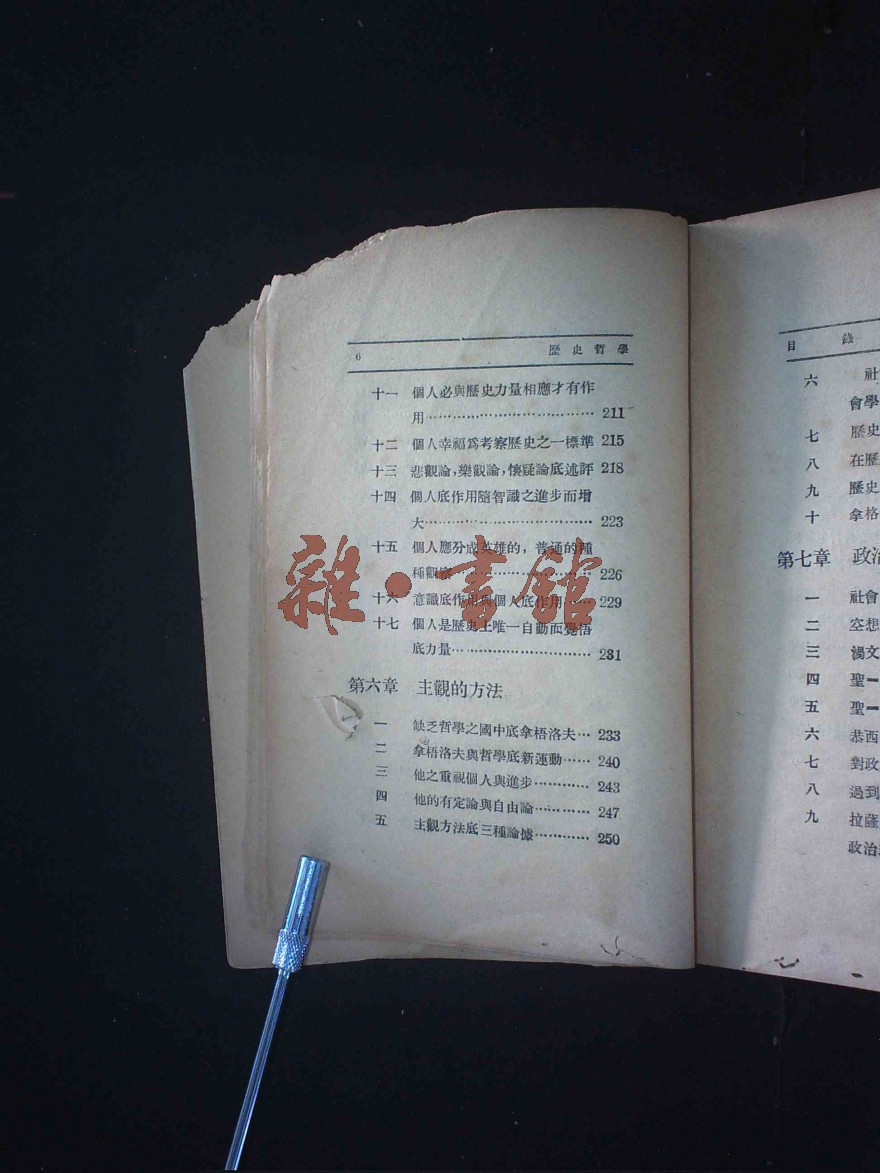 6 歷史哲學
十一 個人必與歷史力量相應才有作
用…………………………… 211
十二 個人幸福爲考察歷史之一標準 215
十三 悲觀論，樂觀論，懷疑論底述評 218
十四 個人底作用隨智識之進步而增
大…………………………… 223
十五 個人應分成英雄的，普通的種
種觀察……………………… 226
十六 意識底作用與個人底作用…… 229
十七 個人是歷史上唯一自動而覺悟
底力量……………………… 231
第六章 主觀的方法
一 缺乏哲學之國中底拿梧洛夫… 233
二 拿梧洛夫與哲學底新運動…… 240
三 他之重視個人與進步………… 243
四 他的有定論與自由論………… 247
五 主觀方法底三種論據………… 250
雜·書館
目錄
六 社
會學
七 歷史
八 在歷
九 歷史
十 拿格
第七章 政治
一 社會
二 空想
三
四 聖一
五 聖一
六 恭西
七 對政
八 過到
九 拉薩
政治